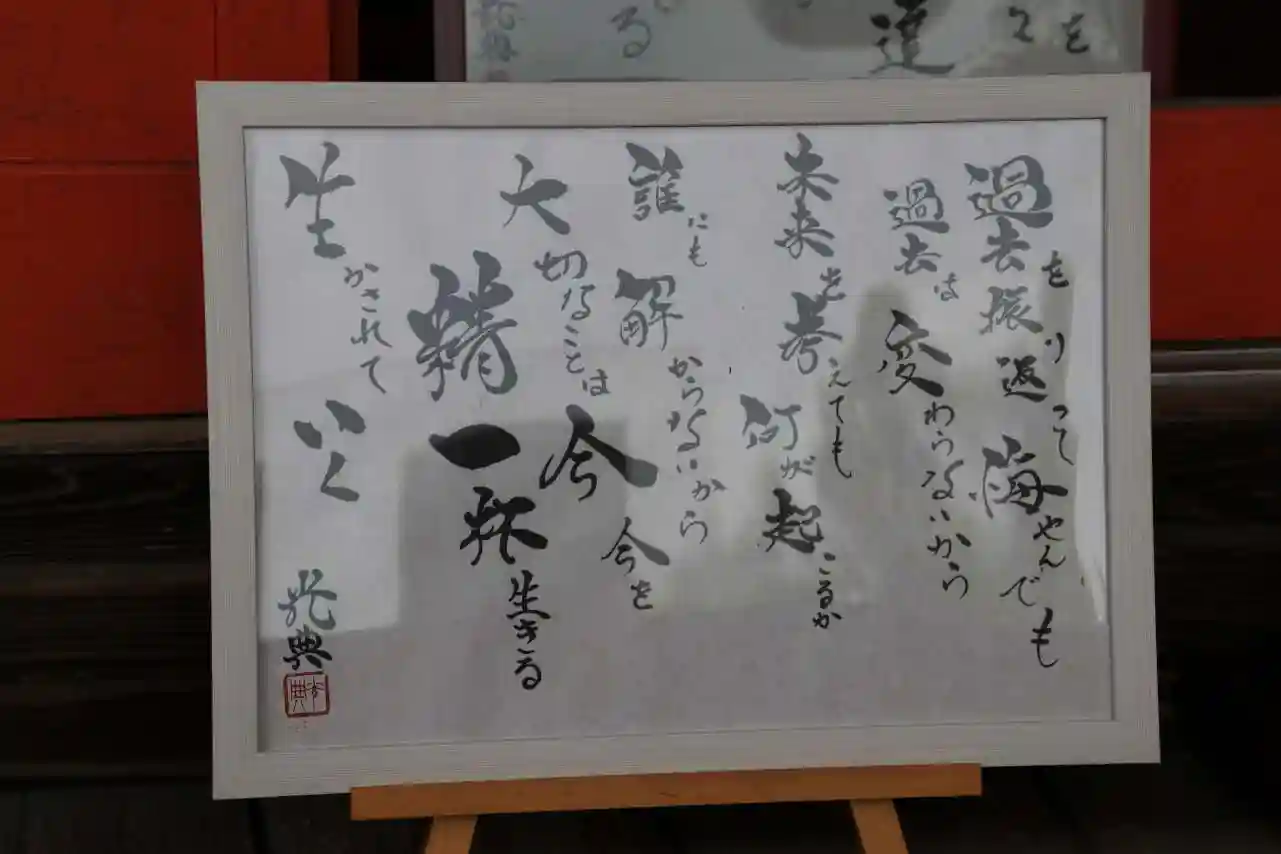 過去を振り返って悔やんでも
過去は変わらないから
未来を考えても何が起こるか
誰にも解からないから今を
大切なことは今
精一杯生きる
生かされていく